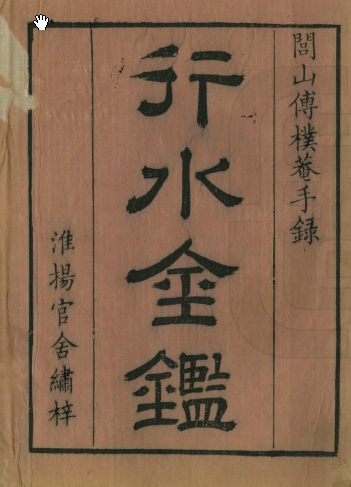 閭山傅樸菴手録
行水金鑑
淮揚官舍繡梓